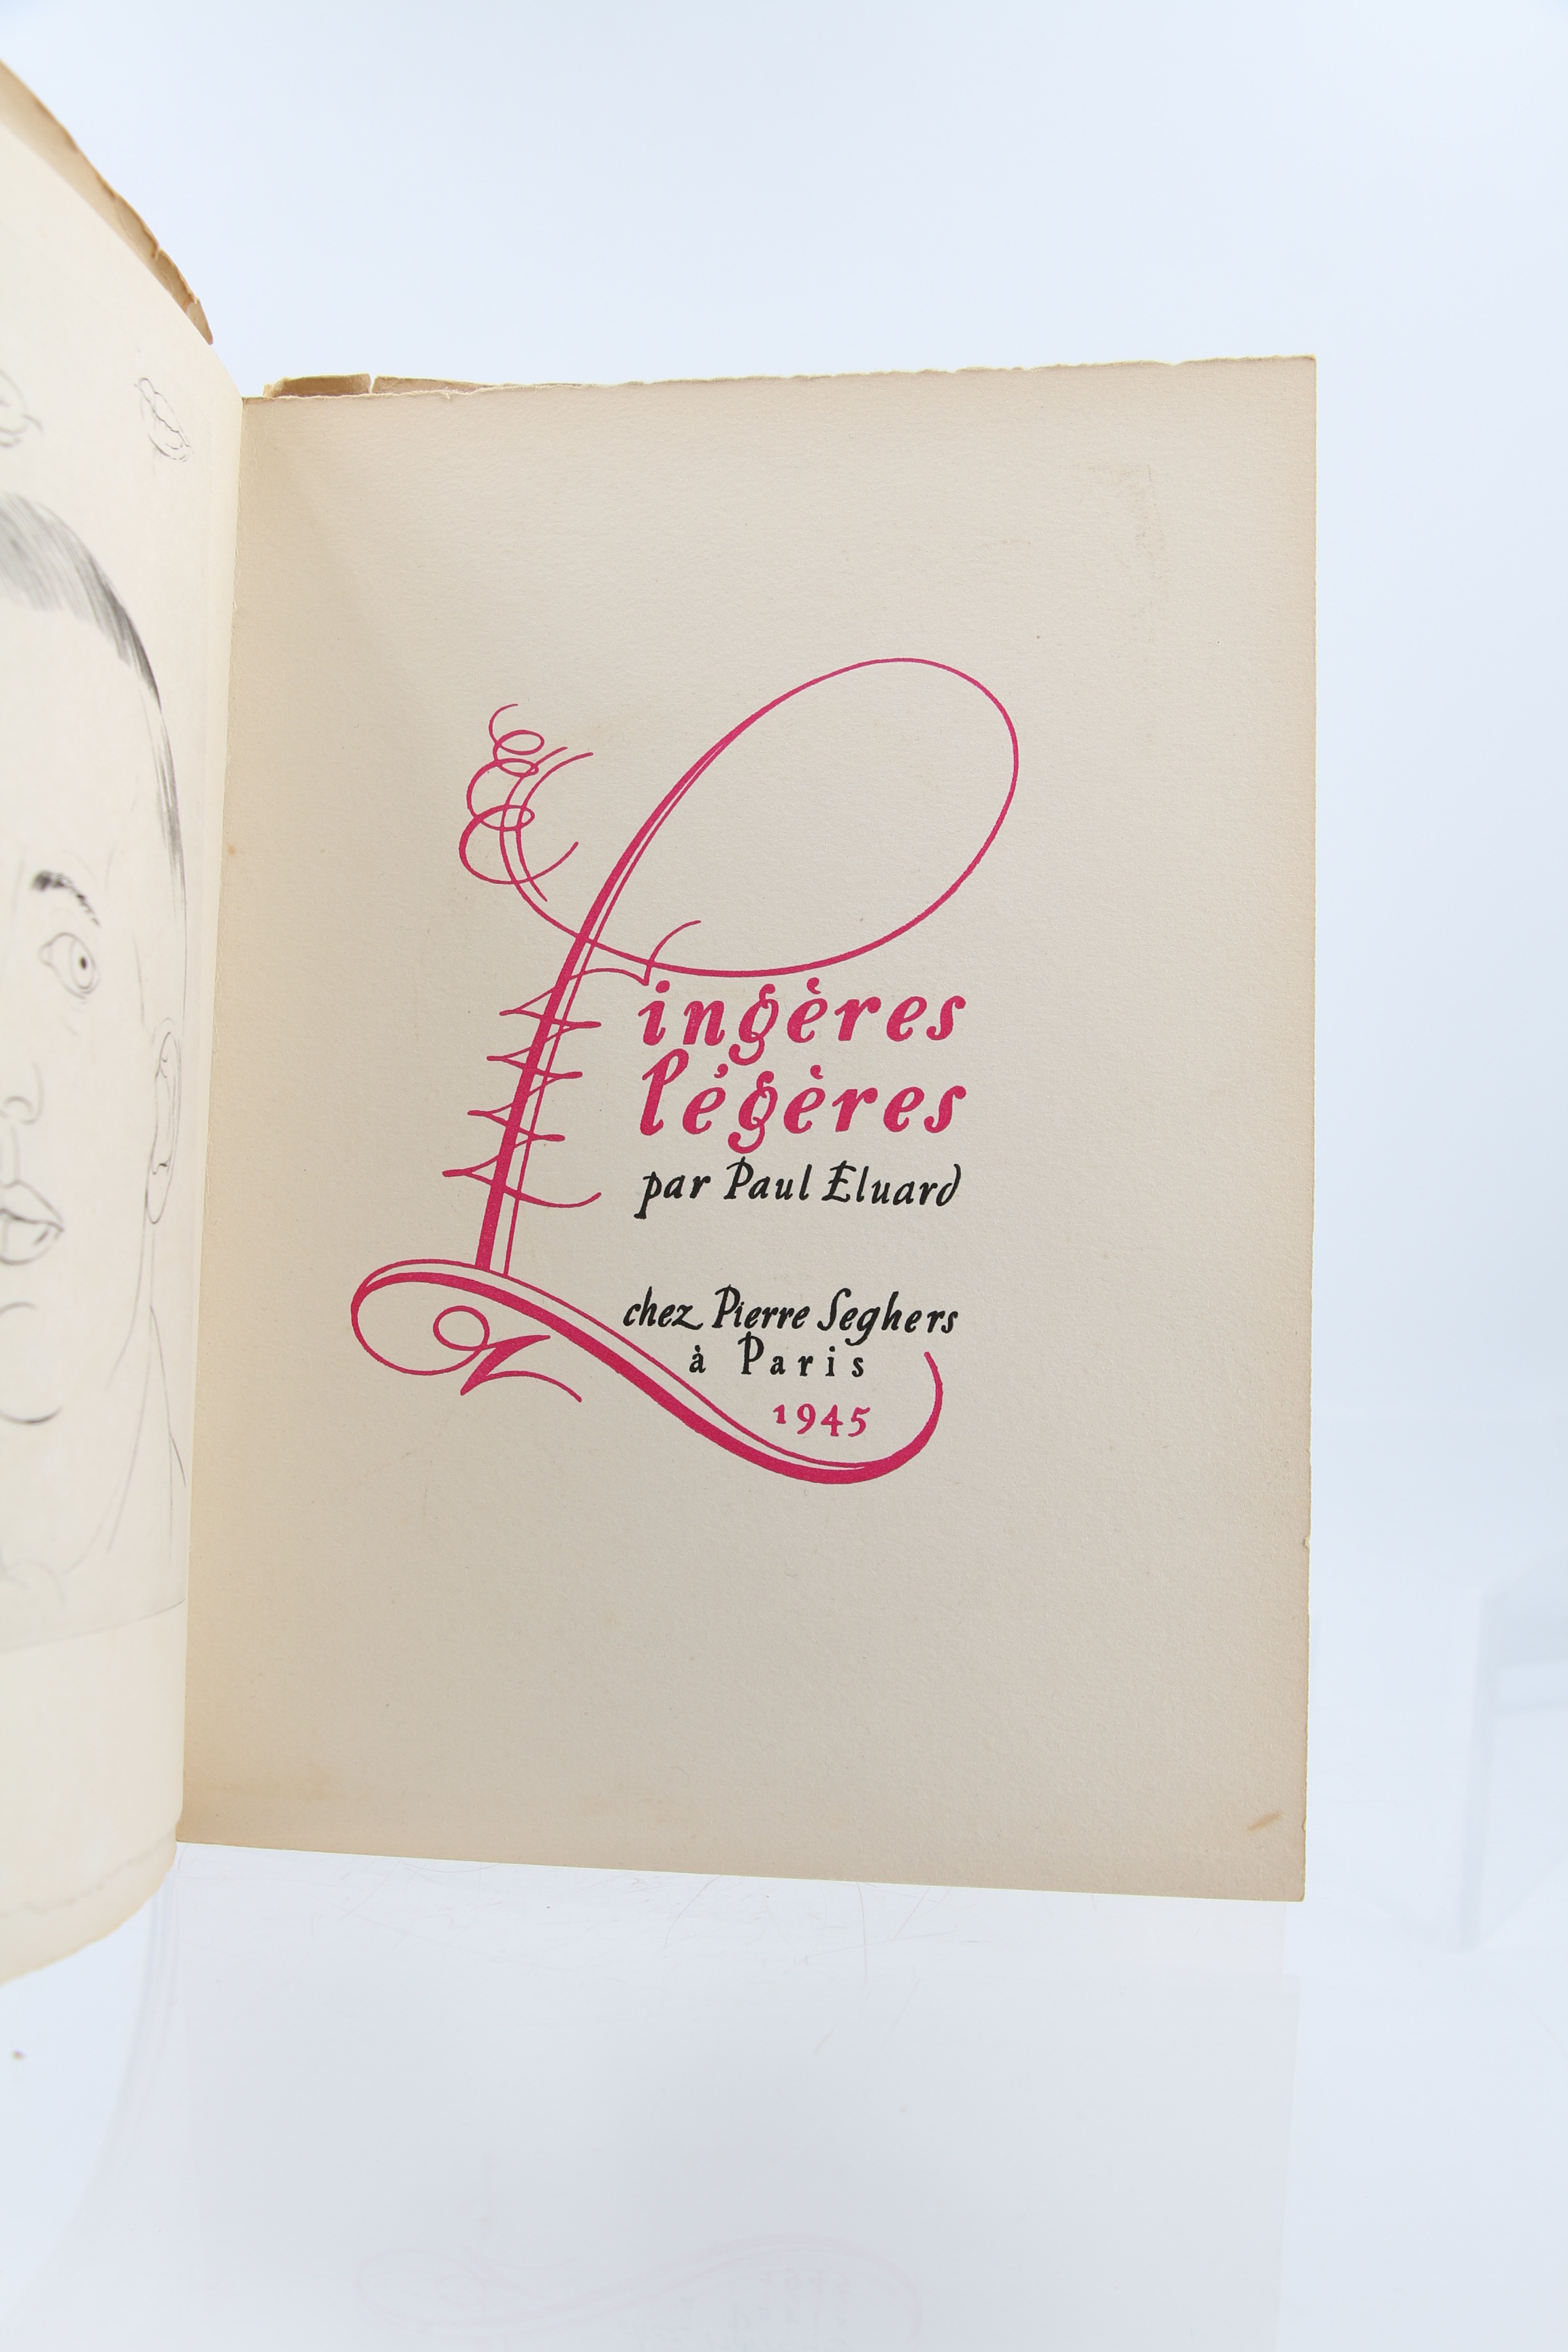 Lingères
légères
par Paul Eluard
chez Pierre Seghers
à Paris
1945